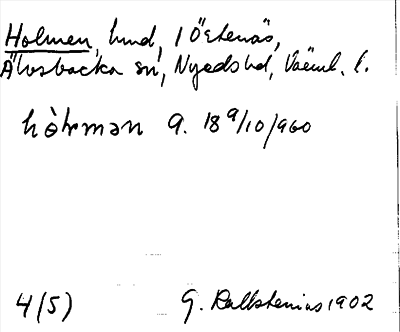 Holmen, hmd, i Östenäs,
Älvsbacka sn, Nyeds hd, Värml. l.
hòlmən a. 18 9/10 1960
4(5) G. Kallstenius 1902